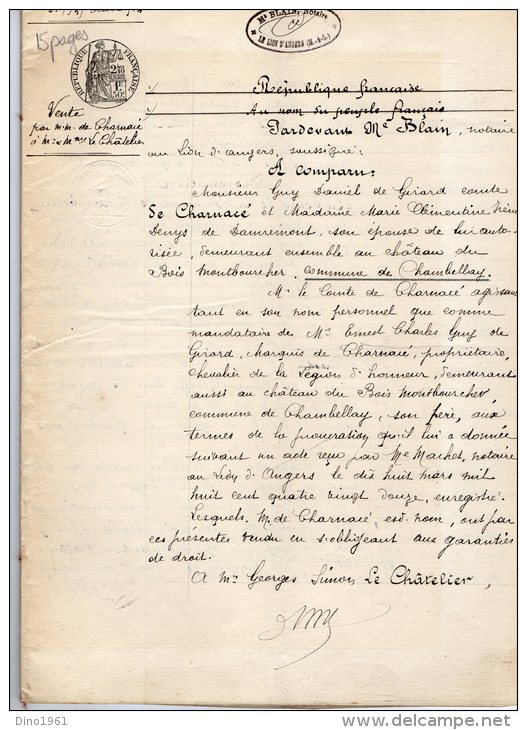 15 pages
Mᵉ BLAIN, Notaire
LE LION D'ANGERS (M.-&-L.)
RÉPUBLIQUE FRANÇAISE
Vente
par M.M. de Charnacé
à Mʳ & Mᵐᵉ Le Châtelier
République française
Au nom du peuple français
Pardevant Mᵉ Blain, notaire
au Lion d'Angers, soussigné:
A comparu:
Monsieur Guy Daniel de Girard comte
de Charnacé et Madame Marie Clémentine Irène
Denys de Damrémont, son épouse de lui auto-
risée, demeurant ensemble au château du
Bois Montboucher, commune de Chambellay.
Mʳ le Comte de Charnacé agissant
tant en son nom personnel que comme
mandataire de Mʳ Ernest Charles Guy de
Girard, Marquis de Charnacé, propriétaire,
chevalier de la Légion d'honneur, demeurant
aussi au château du Bois Montbourcher,
commune de Chambellay, son père, aux
termes de la procuration qu'il lui a donnée
suivant un acte reçu par Mᵉ Machet, notaire
au Lion d'Angers le dix huit mars mil
huit cent quatre vingt douze, enregistré.
Lesquels, M. de Charnacé, esd. nom, ont par
ces présentes vendu en s'obligeant aux garanties
de droit.
A Mʳ Georges Simon Le Châtelier,
Dino1961
delcampe.net